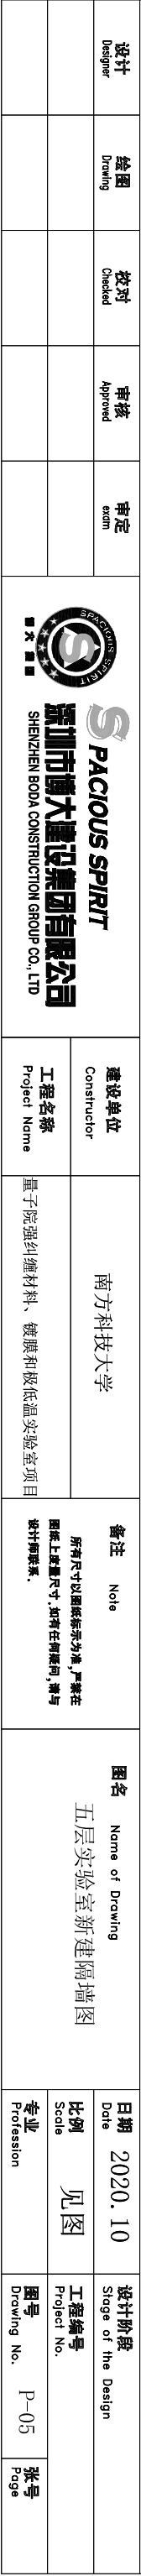 设计
Designer
绘图
Drawing
校对
Checked
审核
Approved
审定
exam
SPACIOUS
SPIRIT
S
博大建设
SPACIOUS SPIRIT
深圳市博大建设集团有限公司
SHENZHEN BODA CONSTRUCTION GROUP CO., LTD
建设单位
Constructor
南方科技大学
工程名称
Project Name
量子院强纠缠材料、镀膜和极低温实验室项目
备注 Note
所有尺寸以图纸标示为准,严禁在
图纸上度量尺寸.如有任何疑问,请与
设计师联系.
图名 Name of Drawing
五层实验室新建隔墙图
日期
Date
2020.10
设计阶段
Stage of the Design
比例
Scale
见图
工程编号
Project No.
专业
Profession
图号
Drawing No.
P-05
张号
Page